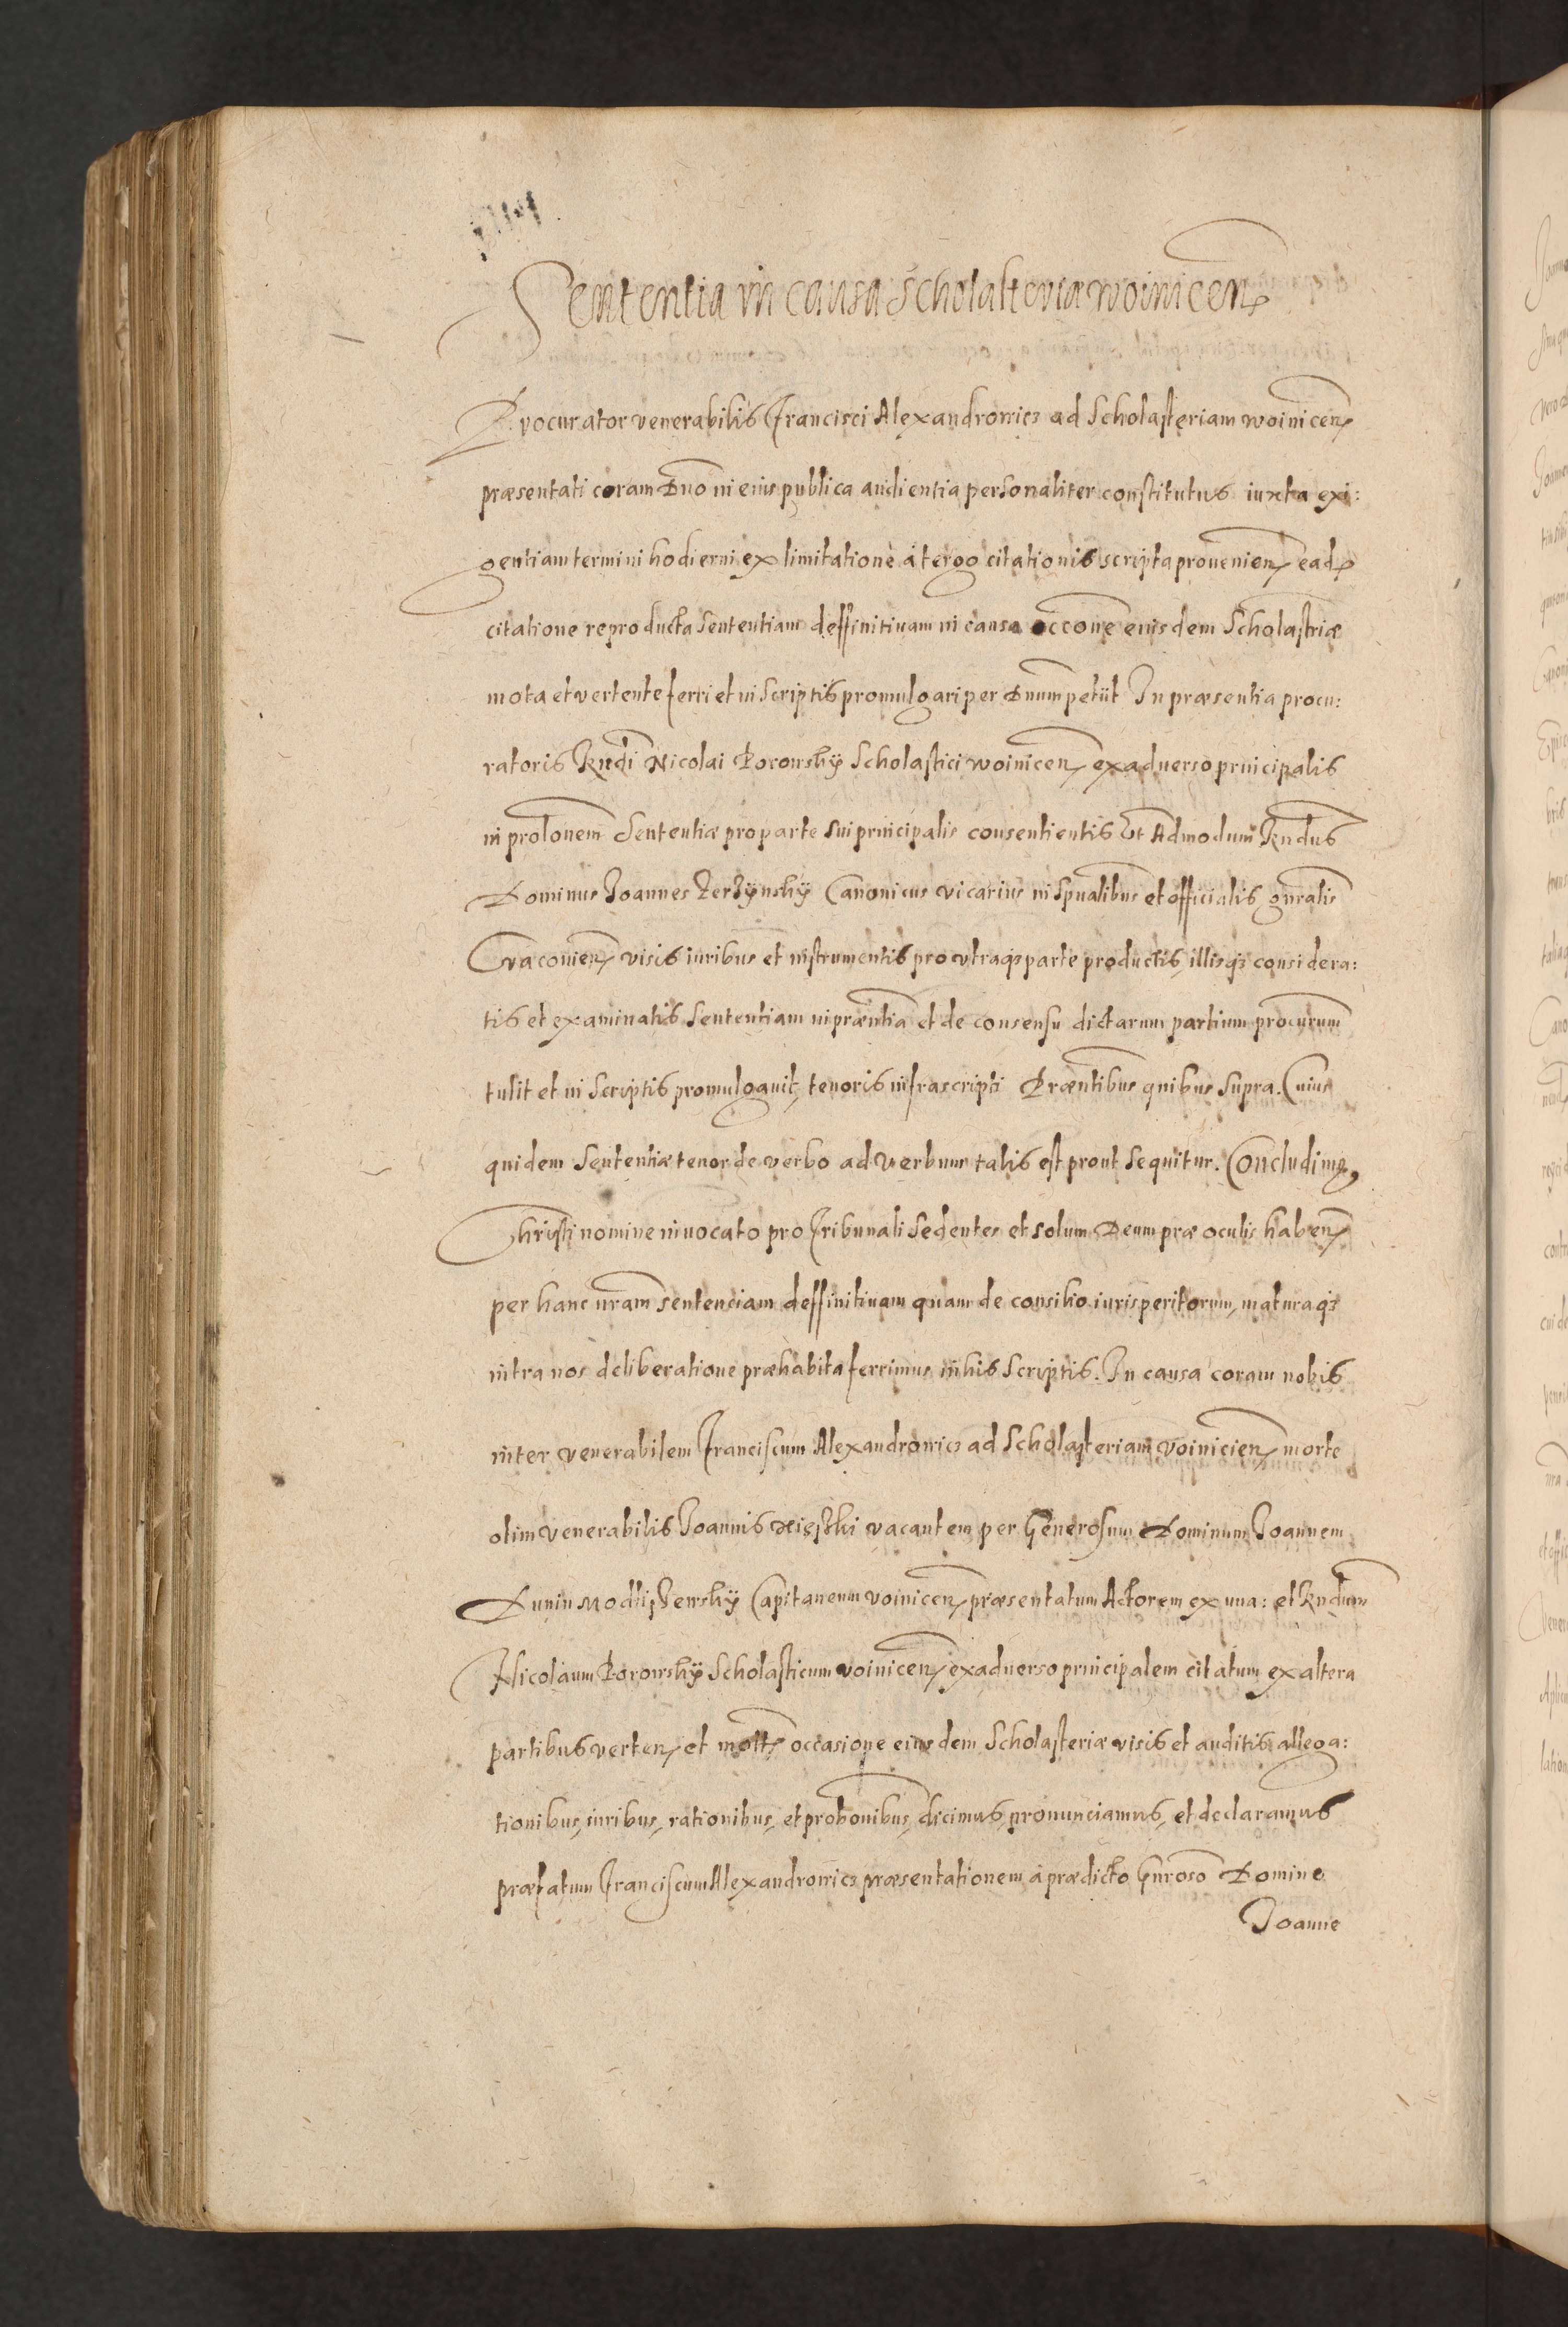 Sententia in causa Scholasteriæ woinicen
Procurator venerabilis Francisci Alexandrowicz ad Scholasteriam woinicen
præsentati coram Dno in eius publica audientia personaliter constitutus iuxta exi:
gentiam termini hodierni ex limitatione à tergo citationis scripta provenien ead
citatione reproducta Sententiam deffinitivam in causa occone eiusdem Scholastriæ
mota et vertente ferri et in Scriptis promulgari per Dnum petiit In præsentia procu:
ratoris Rndi Nicolai Borowsky Scholastici woinicen ex adverso principalis
in prolonem Sententiæ pro parte sui principalis consentientis Et Admodum Rndus
Dominus Joannes Canonicus vicarius in Spualibus et officialis gnralis
Cracovien visis iuribus et instrumentis pro utraqз parte productis, illisqз considera:
tis et examinatis Sententiam in præntia et de consensu dictarum partium procurum
tulit et in Scriptis promulgavit, tenoris infrascripti Præntibus quibus supra. Cuius
quidem Sententiæ tenor de verbo ad verbum talis est prout sequitur. Concludimꝰ
Christi nomine invocato pro Tribunali Sedentes et solum Deum præ oculis haben
per hanc nram sentenciam deffinitivam quam de consilio iurisperitorum, maturaqз
intra nos deliberatione præhabita ferrimus in his Scriptis. In causa coram nobis
inter venerabilem Franciscum Alexandrowicz ad Scholasteriam voinicien morte
olim venerabilis Joannis vacantem per Generosum Dominum Joannem
Dunin Modlissewsky Capitaneum voinicen præsentatum Actorem ex una: et Rndum
Nicolaum Borowsky Scholasticum voinicen ex adverso principalem citatum ex altera
partibus verten et mott occasione eiusdem Scholasteriæ visis et auditis allega:
tionibus, iuribus, rationibus, et probonibus, dicimus, pronunciamus, et declaramus
præfatum Franciscum Alexandrowicz præsentationem à prædicto Gnroso Domino
Joanne